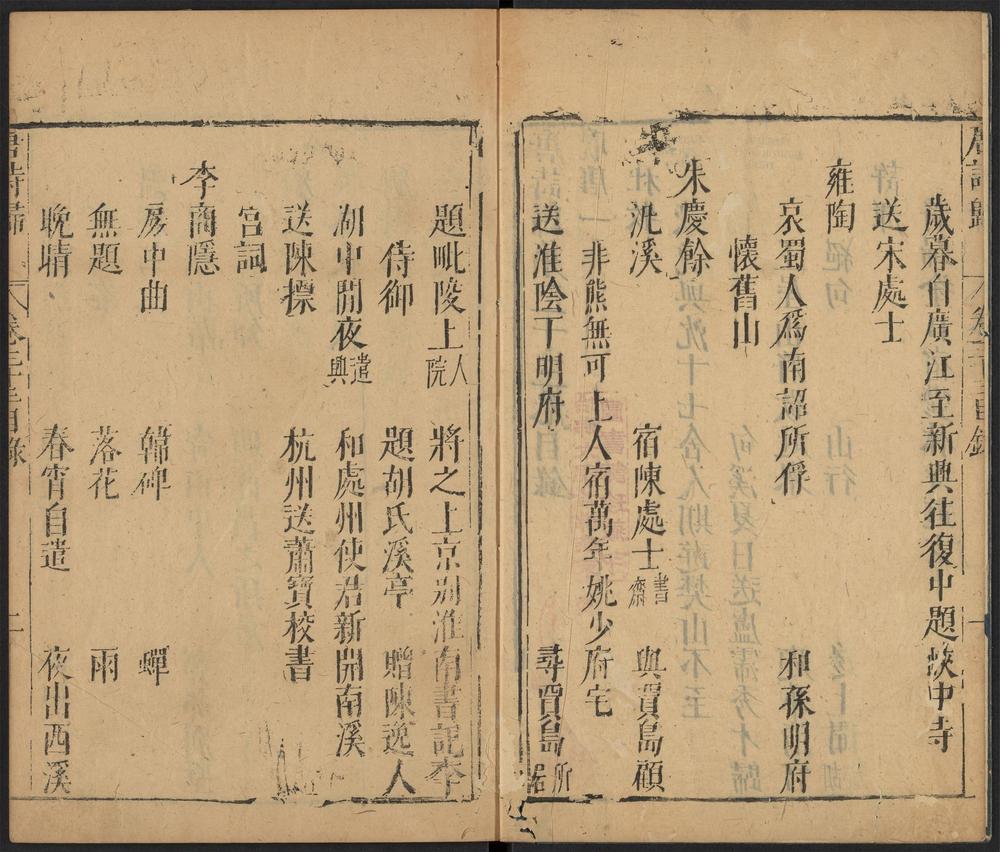 歲暮自廣江至新興往復中題峽中寺
送宋處士
雍陶
哀蜀人爲南詔所俘 和孫明府
懷舊山
朱慶餘
洮溪 宿陳處士書齋 與賈島顧
非熊無可上人宿萬年姚少府宅
送淮陰丁明府 尋賈島所居
題毗陵上人院 將之上京別淮南書記李
侍御 題胡氏溪亭 贈陳逸人
湖中閒夜遣興 和處州使君新開南溪
送陳摽 杭州送蕭寶校書
宮詞
李商隱
房中曲 韓碑 蟬
無題 落花 雨
晚晴 春宵自遣 夜出西溪
唐詩歸 卷三十三目錄 二